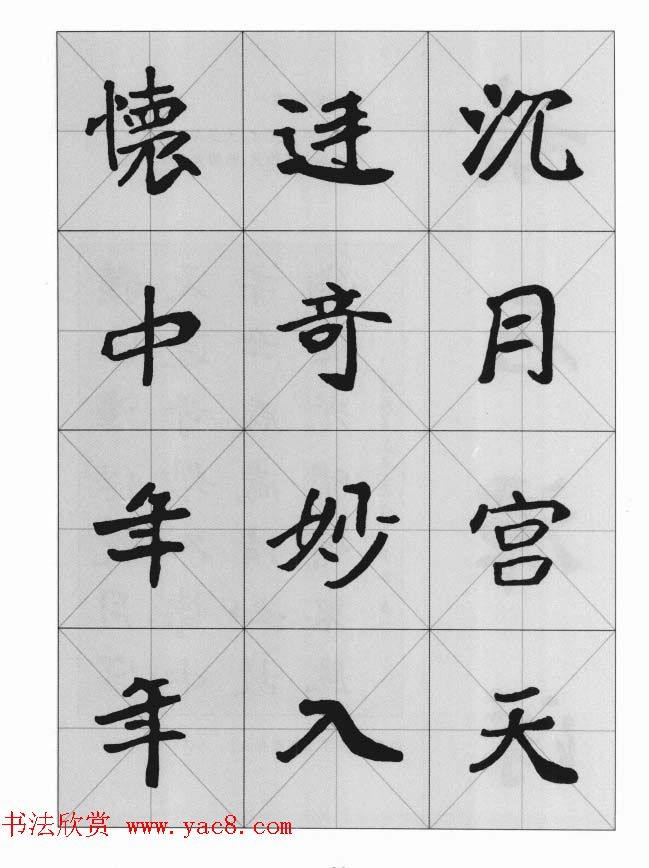 沉月宫天
奇妙入
懷中年年
书法欣赏 www.yac8.com